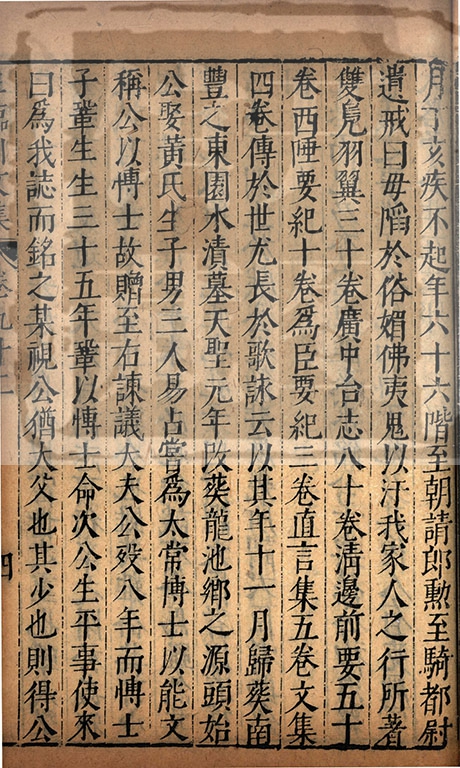 月丁亥疾不起年六十六階至朝請郎勲至騎都尉
遺戒曰毋䧟於俗媚佛夷鬼以汙我家人之行所著
雙鳬羽翼三十卷廣中台志八十卷淸邊前要五十
卷西陲要紀十卷爲臣要紀三卷直言集五卷文集
四卷傳於世尤長於歌詠云以其年十一月歸葬南
豐之東園水漬墓天聖元年改葬龍池鄉之源頭始
公娶黃氏生子男三人易占嘗爲太常博士以能文
稱公以博士故贈至右諫議大夫公殁八年而博士
子鞏生生三十五年鞏以博士命次公生平事使來
曰爲我誌而銘之某視公猶大父也其少也則得公
卷九十二
四